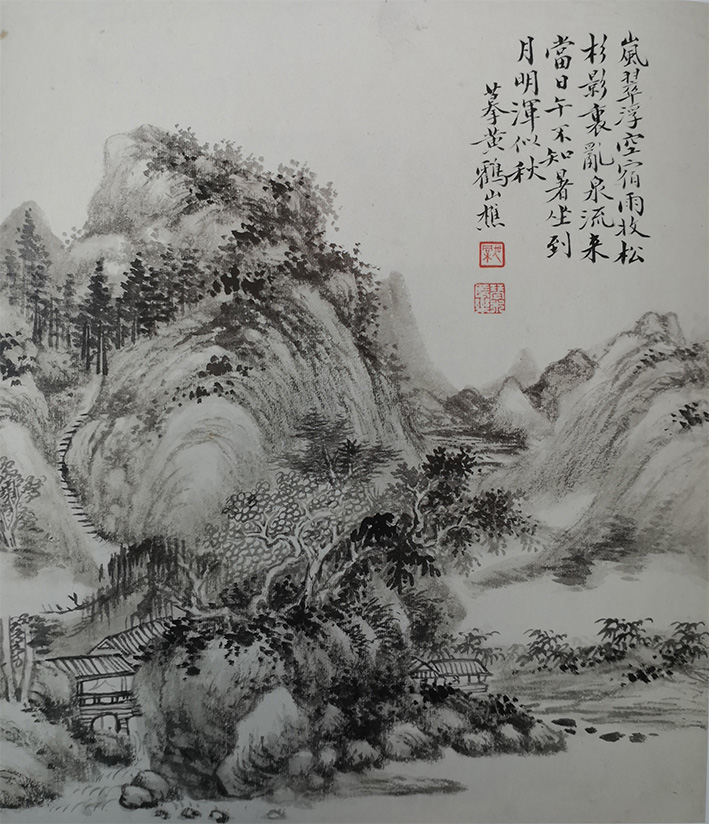 嵐翠浮空宿雨收松
杉影裏亂泉流来
當日午不知暑坐到
月明渾似秋
摹黄鶴山樵